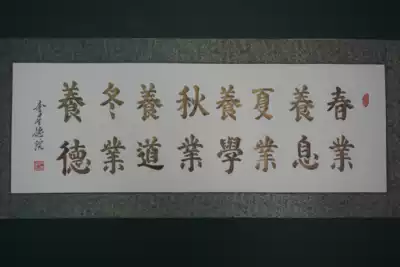 春業
養息
夏業
養學
秋業
養道
冬業
養德